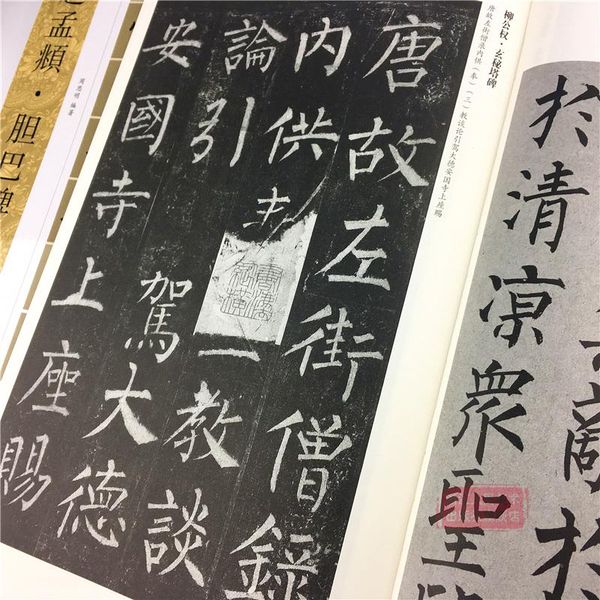 於清凉眾聖
於
柳公权·玄秘塔碑
唐故左街僧录内供（奉）（三）教谈论引驾大德安国寺上座赐
唐故左街僧錄
内供主一教談
論引駕大德
安國寺上座賜
孟頫·胆巴碑
周思明 编著